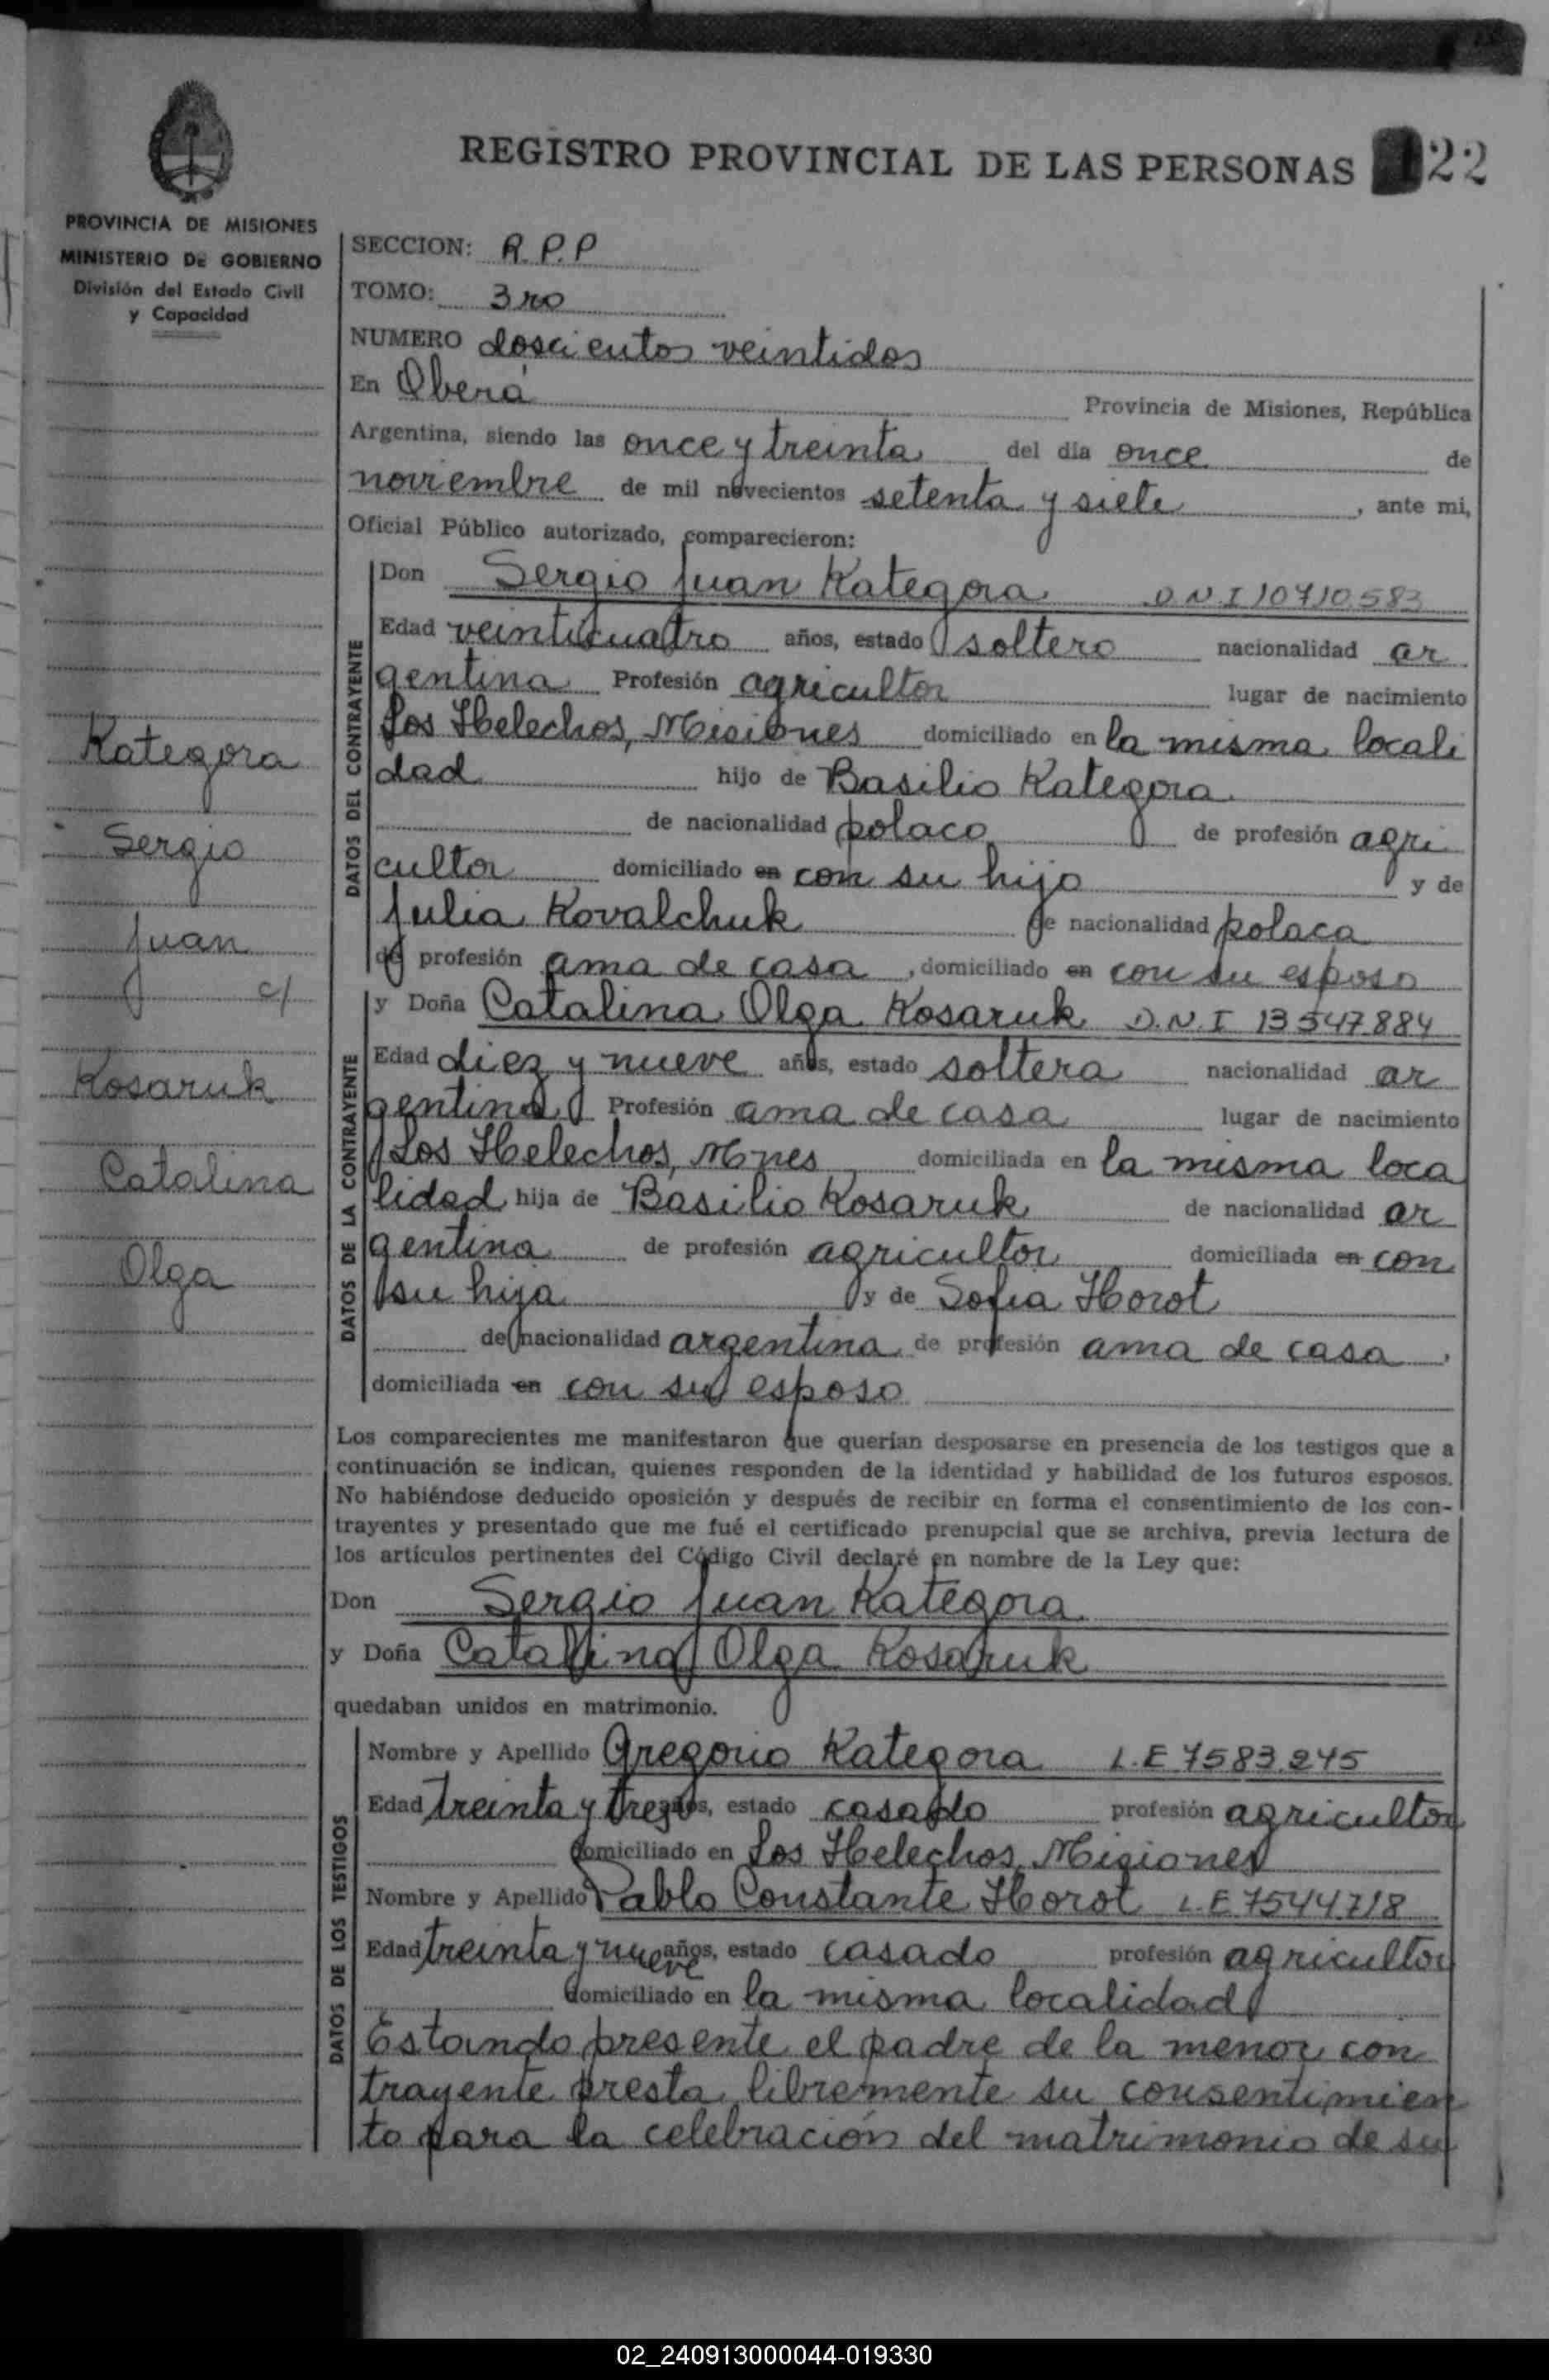 REGISTRO PROVINCIAL DE LAS PERSONAS 22
PROVINCIA DE MISIONES
MINISTERIO DE GOBIERNO
División del Estado Civil
y Capacidad
SECCION: R.P.P
TOMO: 3ro
NUMERO doscientos veintidos
En Oberá Provincia de Misiones, República
Argentina, siendo las once y treinta del día once de
noviembre de mil novecientos setenta y siete, ante mi,
Oficial Público autorizado, comparecieron:
DATOS DEL CONTRAYENTE
Don Sergio Juan Kategora D.N.I 10710.583
Edad veinticuatro años, estado soltero nacionalidad ar
gentina Profesión agricultor lugar de nacimiento
Los Helechos, Misiones domiciliado en la misma locali
dad hijo de Basilio Kategora
de nacionalidad polaco de profesión agri
cultor domiciliado en con su hijo y de
Julia Kovalchuk de nacionalidad polaca
de profesión ama de casa, domiciliado en con su esposo
DATOS DE LA CONTRAYENTE
y Doña Catalina Olga Kosaruk D.N.I 13547.884
Edad diez y nueve años, estado soltera nacionalidad ar
gentina Profesión ama de casa lugar de nacimiento
Los Helechos, Mnes domiciliada en la misma loca
lidad hija de Basilio Kosaruk de nacionalidad ar
gentina de profesión agricultor domiciliada en con
su hija y de Sofia Horot
de nacionalidad argentina de profesión ama de casa,
domiciliada en con su esposo
Kategora
Sergio
Juan
c/
Kosaruk
Catalina
Olga
Los comparecientes me manifestaron que querían desposarse en presencia de los testigos que a
continuación se indican, quienes responden de la identidad y habilidad de los futuros esposos.
No habiéndose deducido oposición y después de recibir en forma el consentimiento de los con-
trayentes y presentado que me fué el certificado prenupcial que se archiva, previa lectura de
los artículos pertinentes del Código Civil declaré en nombre de la Ley que:
Don Sergio Juan Kategora
y Doña Catalina Olga Kosaruk
quedaban unidos en matrimonio.
DATOS DE LOS TESTIGOS
Nombre y Apellido Gregorio Kategora L.E 7583.245
Edad treinta y tres años, estado casado profesión agricultor
domiciliado en Los Helechos, Misiones
Nombre y Apellido Pablo Constante Horot L.E 7544.718
Edad treinta y nueve años, estado casado profesión agricultor
domiciliado en la misma localidad
Estando presente el padre de la menor con
trayente presta libremente su consentimien
to para la celebración del matrimonio de su
02_240913000044-019330